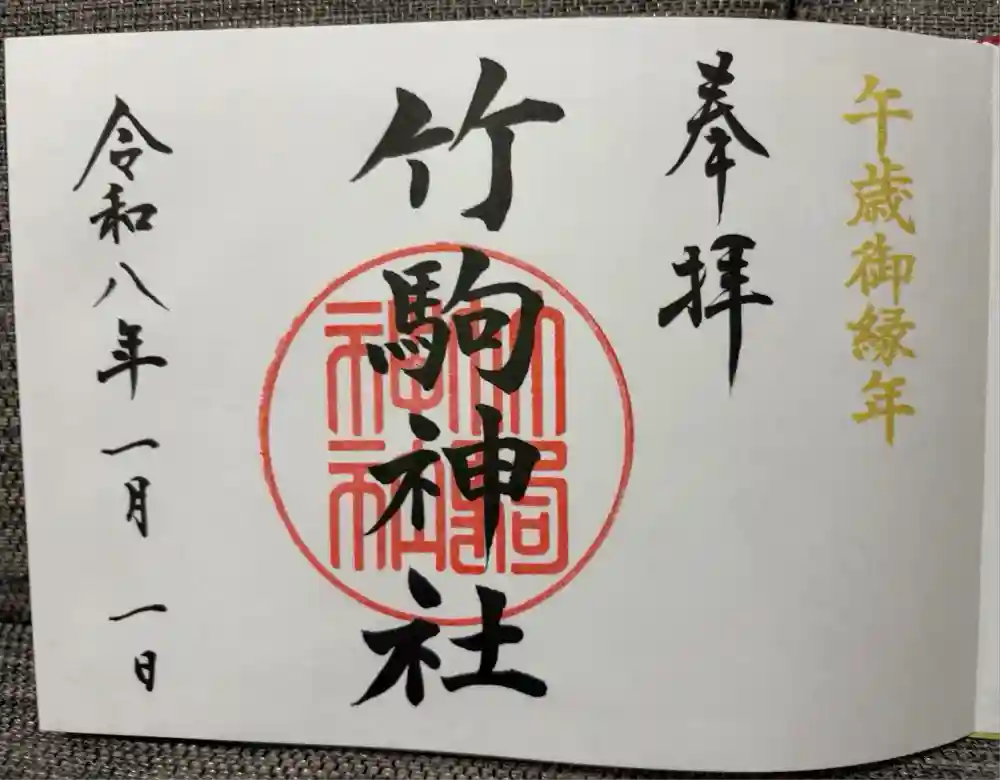 午歳御縁年
奉拝
竹駒神社
竹駒
神社
令和八年一月一日